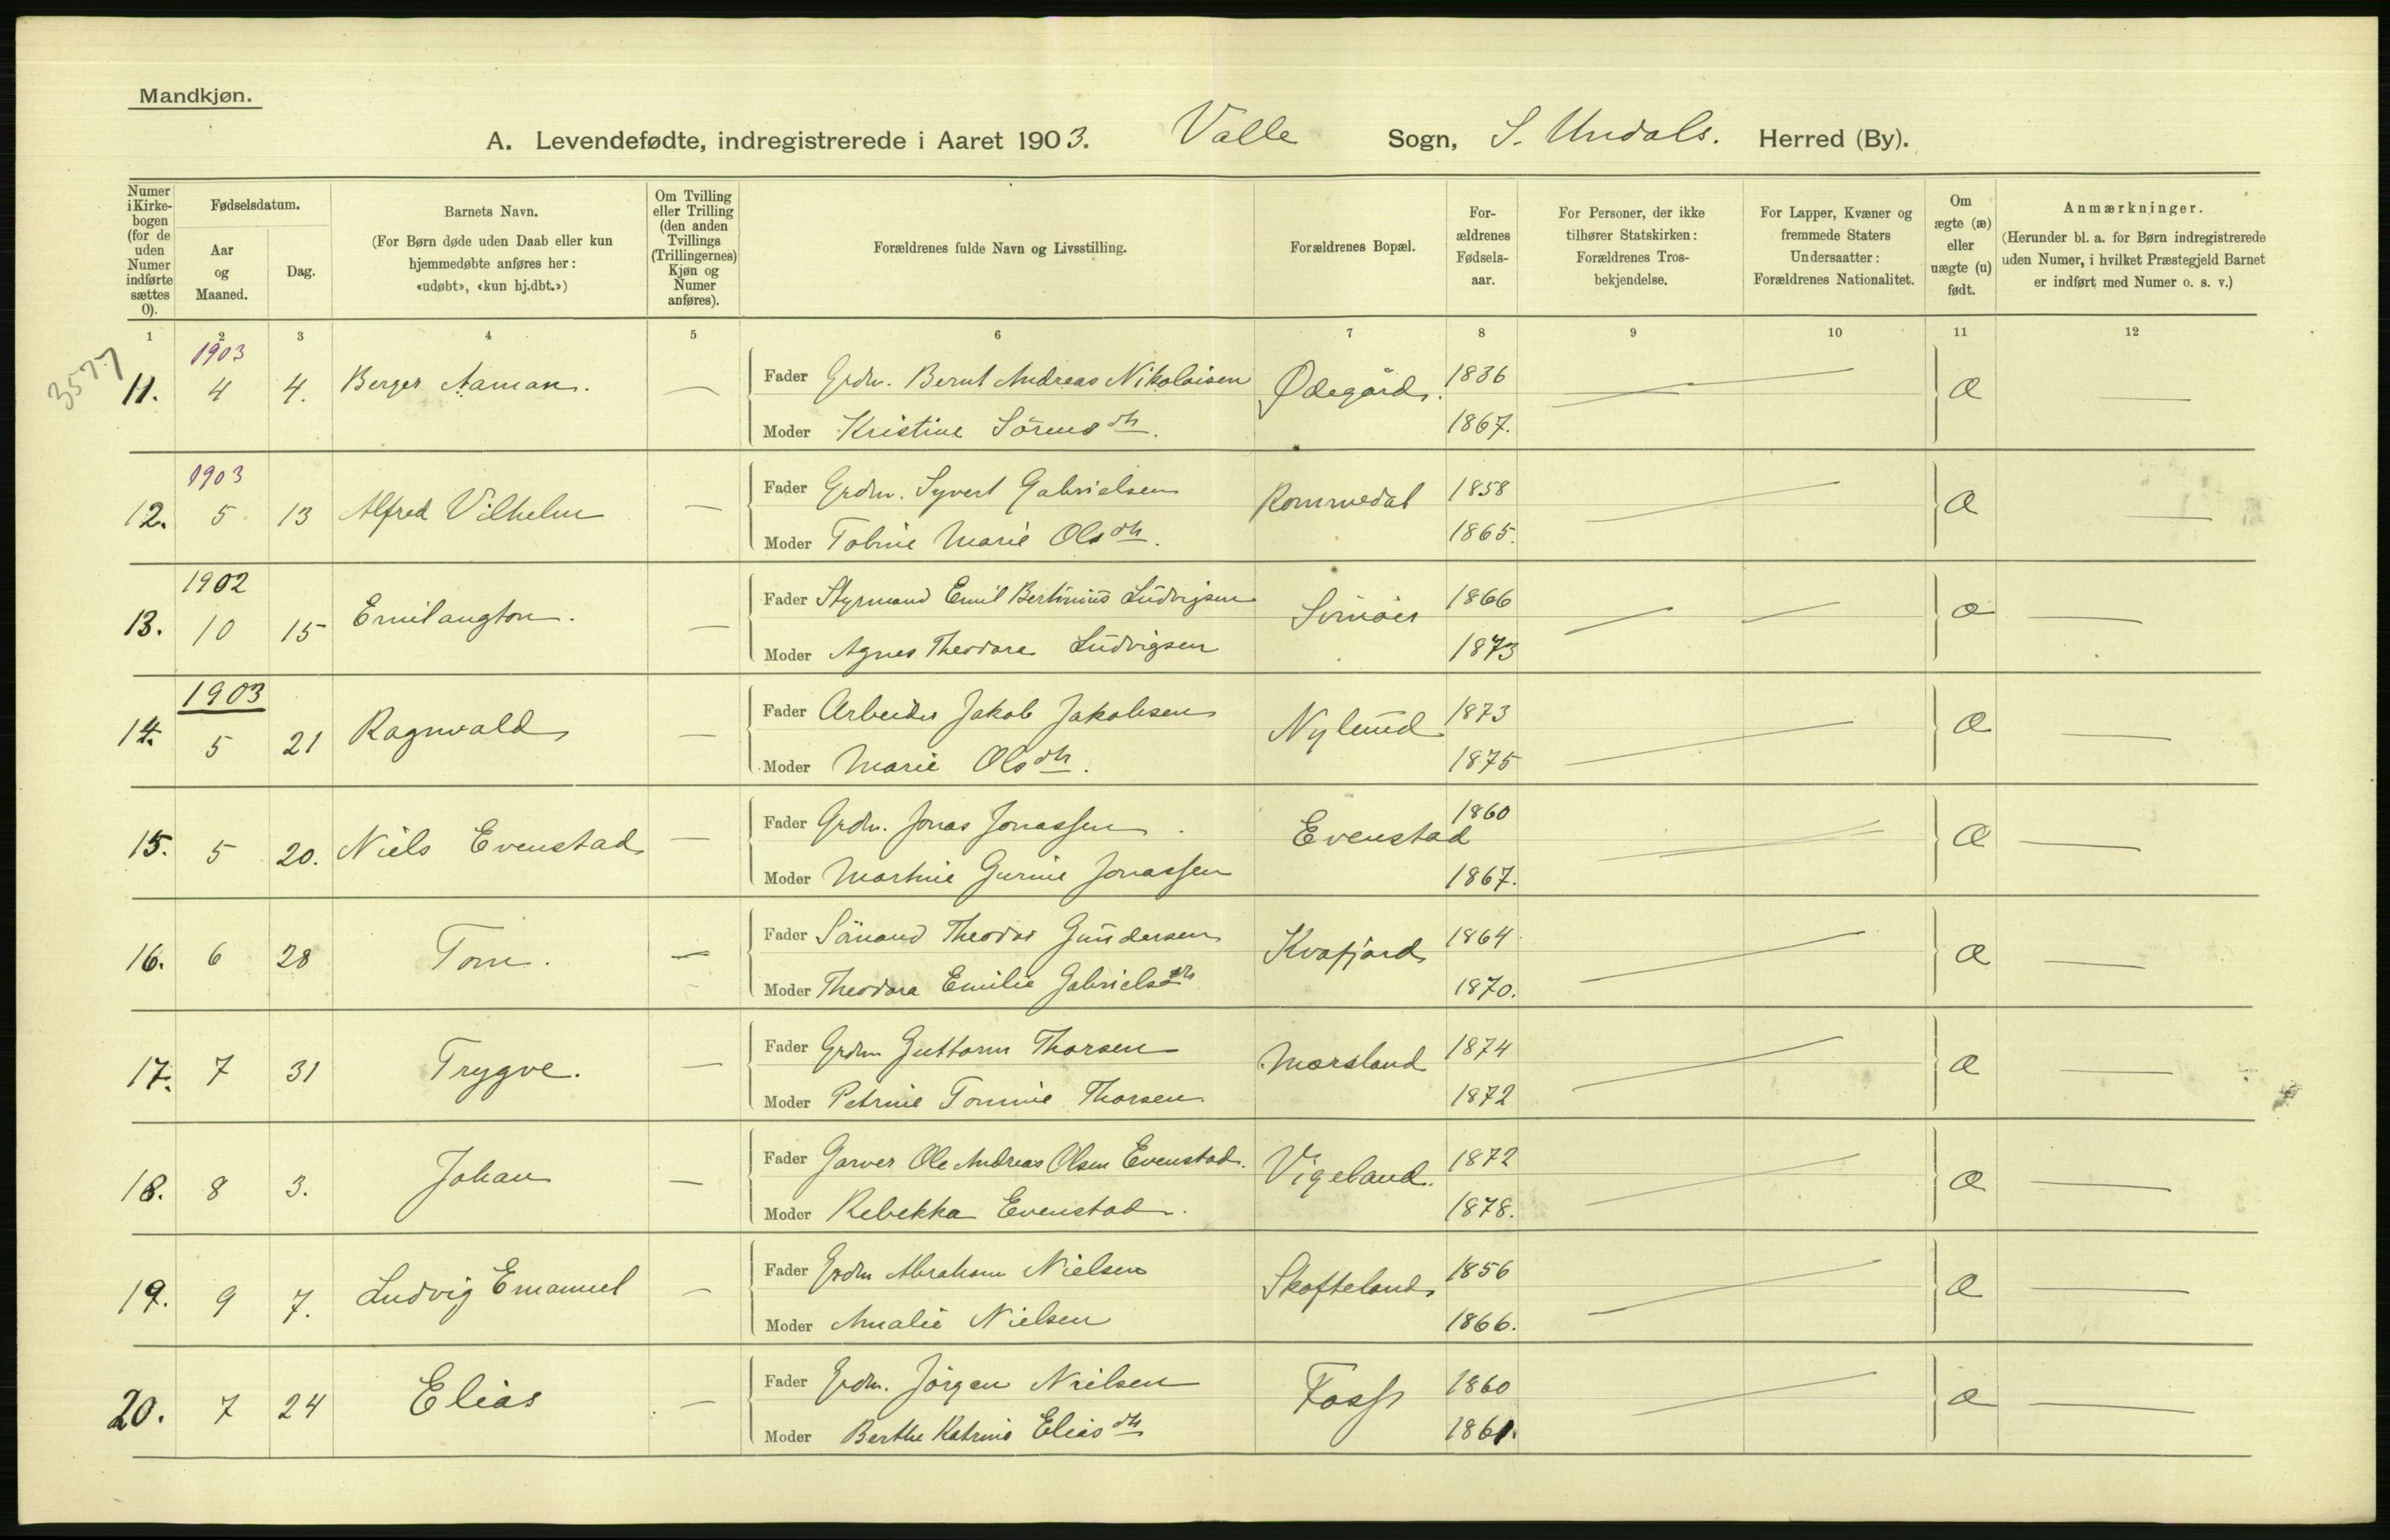 Mandkjøn.
A. Levendefødte, indregistrerede i Aaret 1903. Valle Sogn, S. Undals. Herred (By).
Numer i Kirke-bogen (for de uden Numer indførte sættes 0).
Fødselsdatum.
Aar og Maaned.
Dag.
Barnets Navn.
(For Børn døde uden Daab eller kun hjemmedøbte anføres her: «udøbt», «kun hj.dbt.»)
Om Tvilling eller Trilling (den anden Tvillings (Trillingernes) Kjøn og Numer anføres).
Forældrenes fulde Navn og Livsstilling.
Forældrenes Bopæl.
For-ældrenes Fødsels-aar.
For Personer, der ikke tilhører Statskirken: Forældrenes Tros-bekjendelse.
For Lapper, Kvæner og fremmede Staters Undersaatter: Forældrenes Nationalitet.
Om ægte (æ) eller uægte (u) født.
Anmærkninger.
(Herunder bl. a. for Børn indregistrerede uden Numer, i hvilket Præstegjeld Barnet er indført med Numer o. s. v.)
1 2 3 4 5 6 7 8 9 10 11 12
3577
1903
11. 4 4. Berger Aaman. — Fader Grdm. Bernt Andreas Nikolaisen Ødegård. 1836 æ —
Moder Kristine Sörensdtr. 1867.
1903
12. 5 13 Alfred Vilhelm — Fader Grdm. Syvert Gabrielsen Rommedal 1858 æ —
Moder Tobine Marie Olsdtr. 1865.
1902
13. 10 15 Emil — Fader Styrmand Emil Bertinius Ludvigsen 1866 æ —
Moder Agnes Theodora Ludvigsen 1873
1903
14. 5 21 Ragnvald — Fader Arbeider Jakob Jakobsen Nylund 1873 æ —
Moder Marie Olsdtr. 1875
15. 5 20. Niels Evenstad — Fader Grdm. Jonas Jonassen. Evenstad 1860 æ —
Moder Martine Gurine Jonassen 1867.
16. 6 28 Tom. — Fader Sömand Theodor Gundersen Kvafjord 1864 æ —
Moder Theodora Emilie Gabrielsdtr. 1870.
17. 7 31 Trygve. — Fader Grdm Guttorm Thorsen Marsland 1874 æ —
Moder Petrine Tomine Thorsen 1872
18. 8 3. Johan — Fader Garver Ole Andreas Olsen Evenstad. Vigeland. 1872 æ —
Moder Rebekka Evenstad. 1878.
19. 9 7. Ludvig Emanuel — Fader Grdm Abraham Nielsen Skofteland 1856 æ —
Moder Amalie Nielsen 1866.
20. 7 24 Elias — Fader Grdm. Jörgen Nielsen Foss 1860 æ —
Moder Berthe Katrine Eliasdtr 1861.